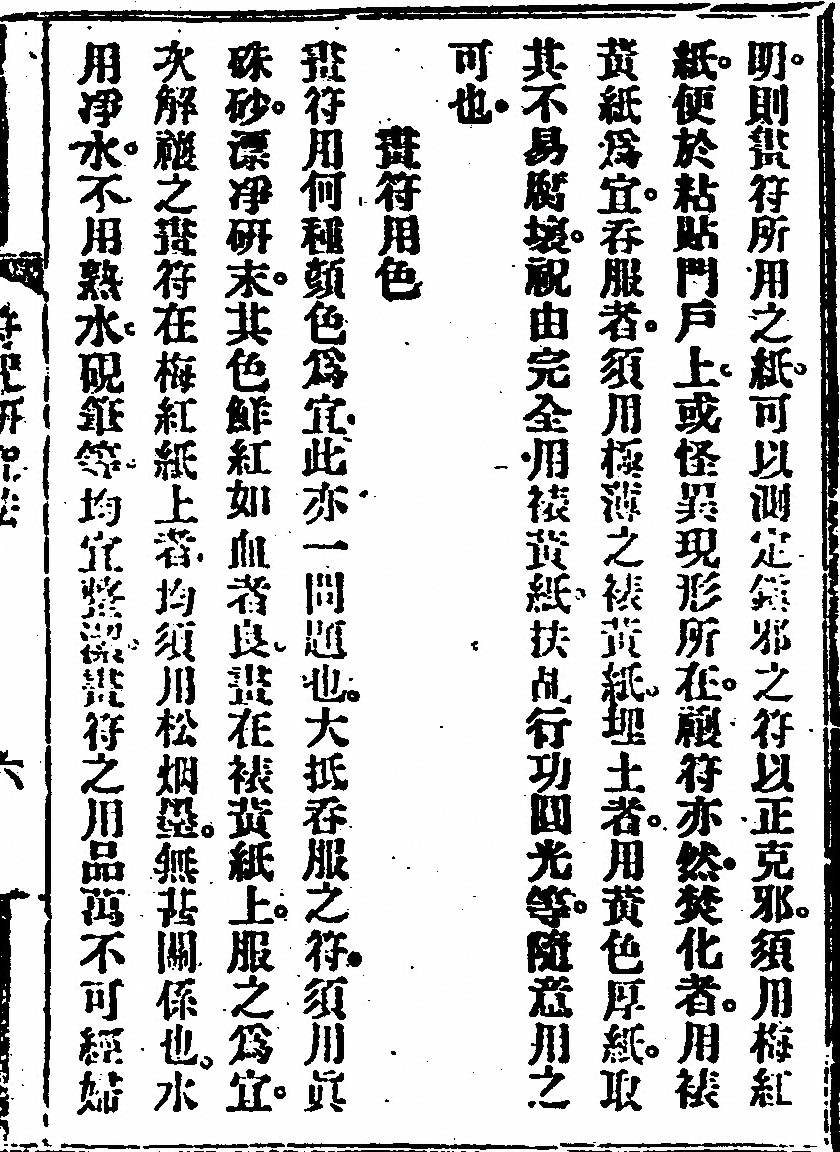 明。則畫符所用之紙。可以測定鎮邪之符以正克邪。須用梅紅
紙。便於粘貼門戶上。或怪異現形所在。禳符亦然。焚化者。用裱
黃紙爲宜。吞服者。須用極薄之裱黃紙。埋土者。用黃色厚紙。取
其不易腐壞。祝由完全用裱黃紙。扶乩行功圓光等。隨意用之
可也。
畫符用色
畫符用何種顏色爲宜。此亦一問題也。大抵吞服之符。須用眞
硃砂。漂净研末。其色鮮紅如血者良。畫在裱黃紙上。服之爲宜。
次解禳之畫符在梅紅紙上者。均須用松烟墨。無甚關係也。水
用净水。不用熟水。硯錐等。均宜整潔。畫符之用品萬不可經婦
六